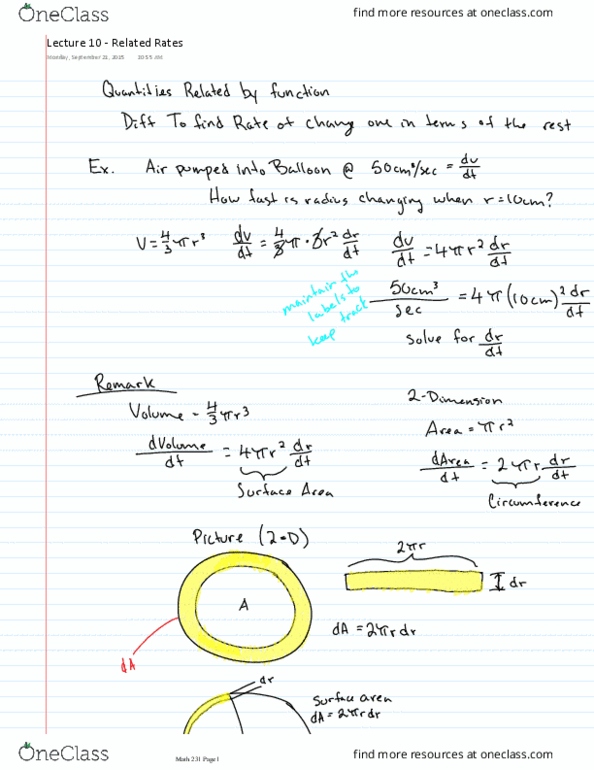 OneClass
find more resources at oneclass.com
Lecture 10 - Related Rates
Monday, September 21, 2015 10:55 AM
Quantities Related by function
Diff To find Rate of change one in terms of the rest
Ex. Air pumped into Balloon @ 50cm³/sec = dv/dt
How fast is radius changing when r=10cm?
V=4/3πr³ dv/dt = 4/3π·3r² dr/dt dv/dt = 4πr² dr/dt
maintain the
labels to
keep track
50cm³/sec = 4π(10cm)² dr/dt
solve for dr/dt
Remark
Volume = 4/3πr³
dVolume/dt = 4πr² dr/dt
Surface Area
2-Dimension
Area = πr²
dArea/dt = 2πr dr/dt
Circumference
Picture (2-D)
A
dA
2πr
dr
dA = 2πrdr
dr
Surface area
dA = 2πrdr
OneClass
Math 231 Page 1
find more resources at oneclass.com